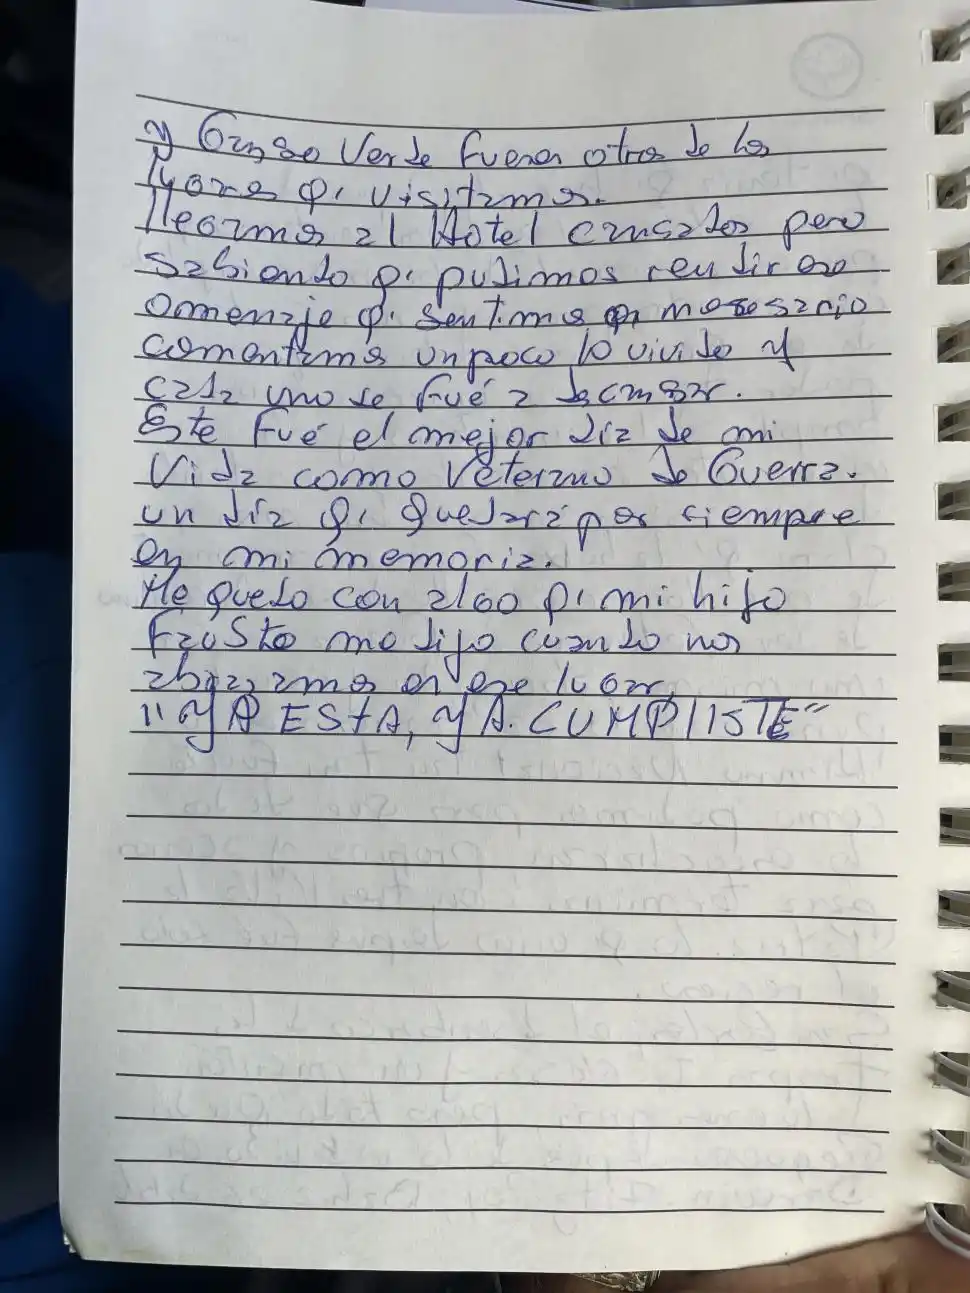 y Ganso Verde fueron otros de los
lugares q. visitamos.
llegamos al Hotel cansados pero
sabiendo q. pudimos rendir ese
omenaje q. sentimos q. nesesario
comentamos un poco lo vivido y
cada uno se fué a descansar.
Este fué el mejor día de mi
Vida como Veterano de Guerra.
un día q. quedará por siempre
en mi memoria.
Me quedo con algo q. mi hijo
Fausto me dijo cuando nos
abrazamos en ese lugar,
"YA ESTA, YA. CUMPLISTE"